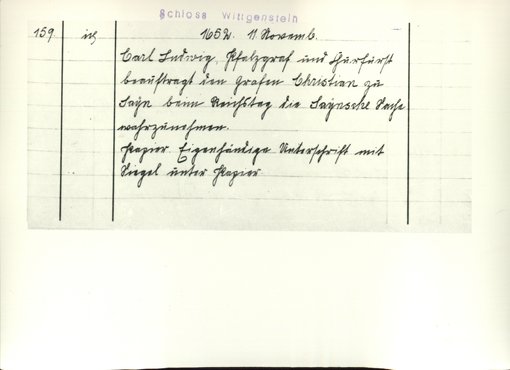 Schloss Wittgenstein
159. 1652. 11 Novemb.
Carl Ludwig, Pfalzgraf und Churfürst
beauftragt den Grafen Christian zu
Sayn beim Reichstag die Saynsche Sache
wahrzunehmen.
Papier. Eigenhändige Unterschrift mit
Siegel unter Papier